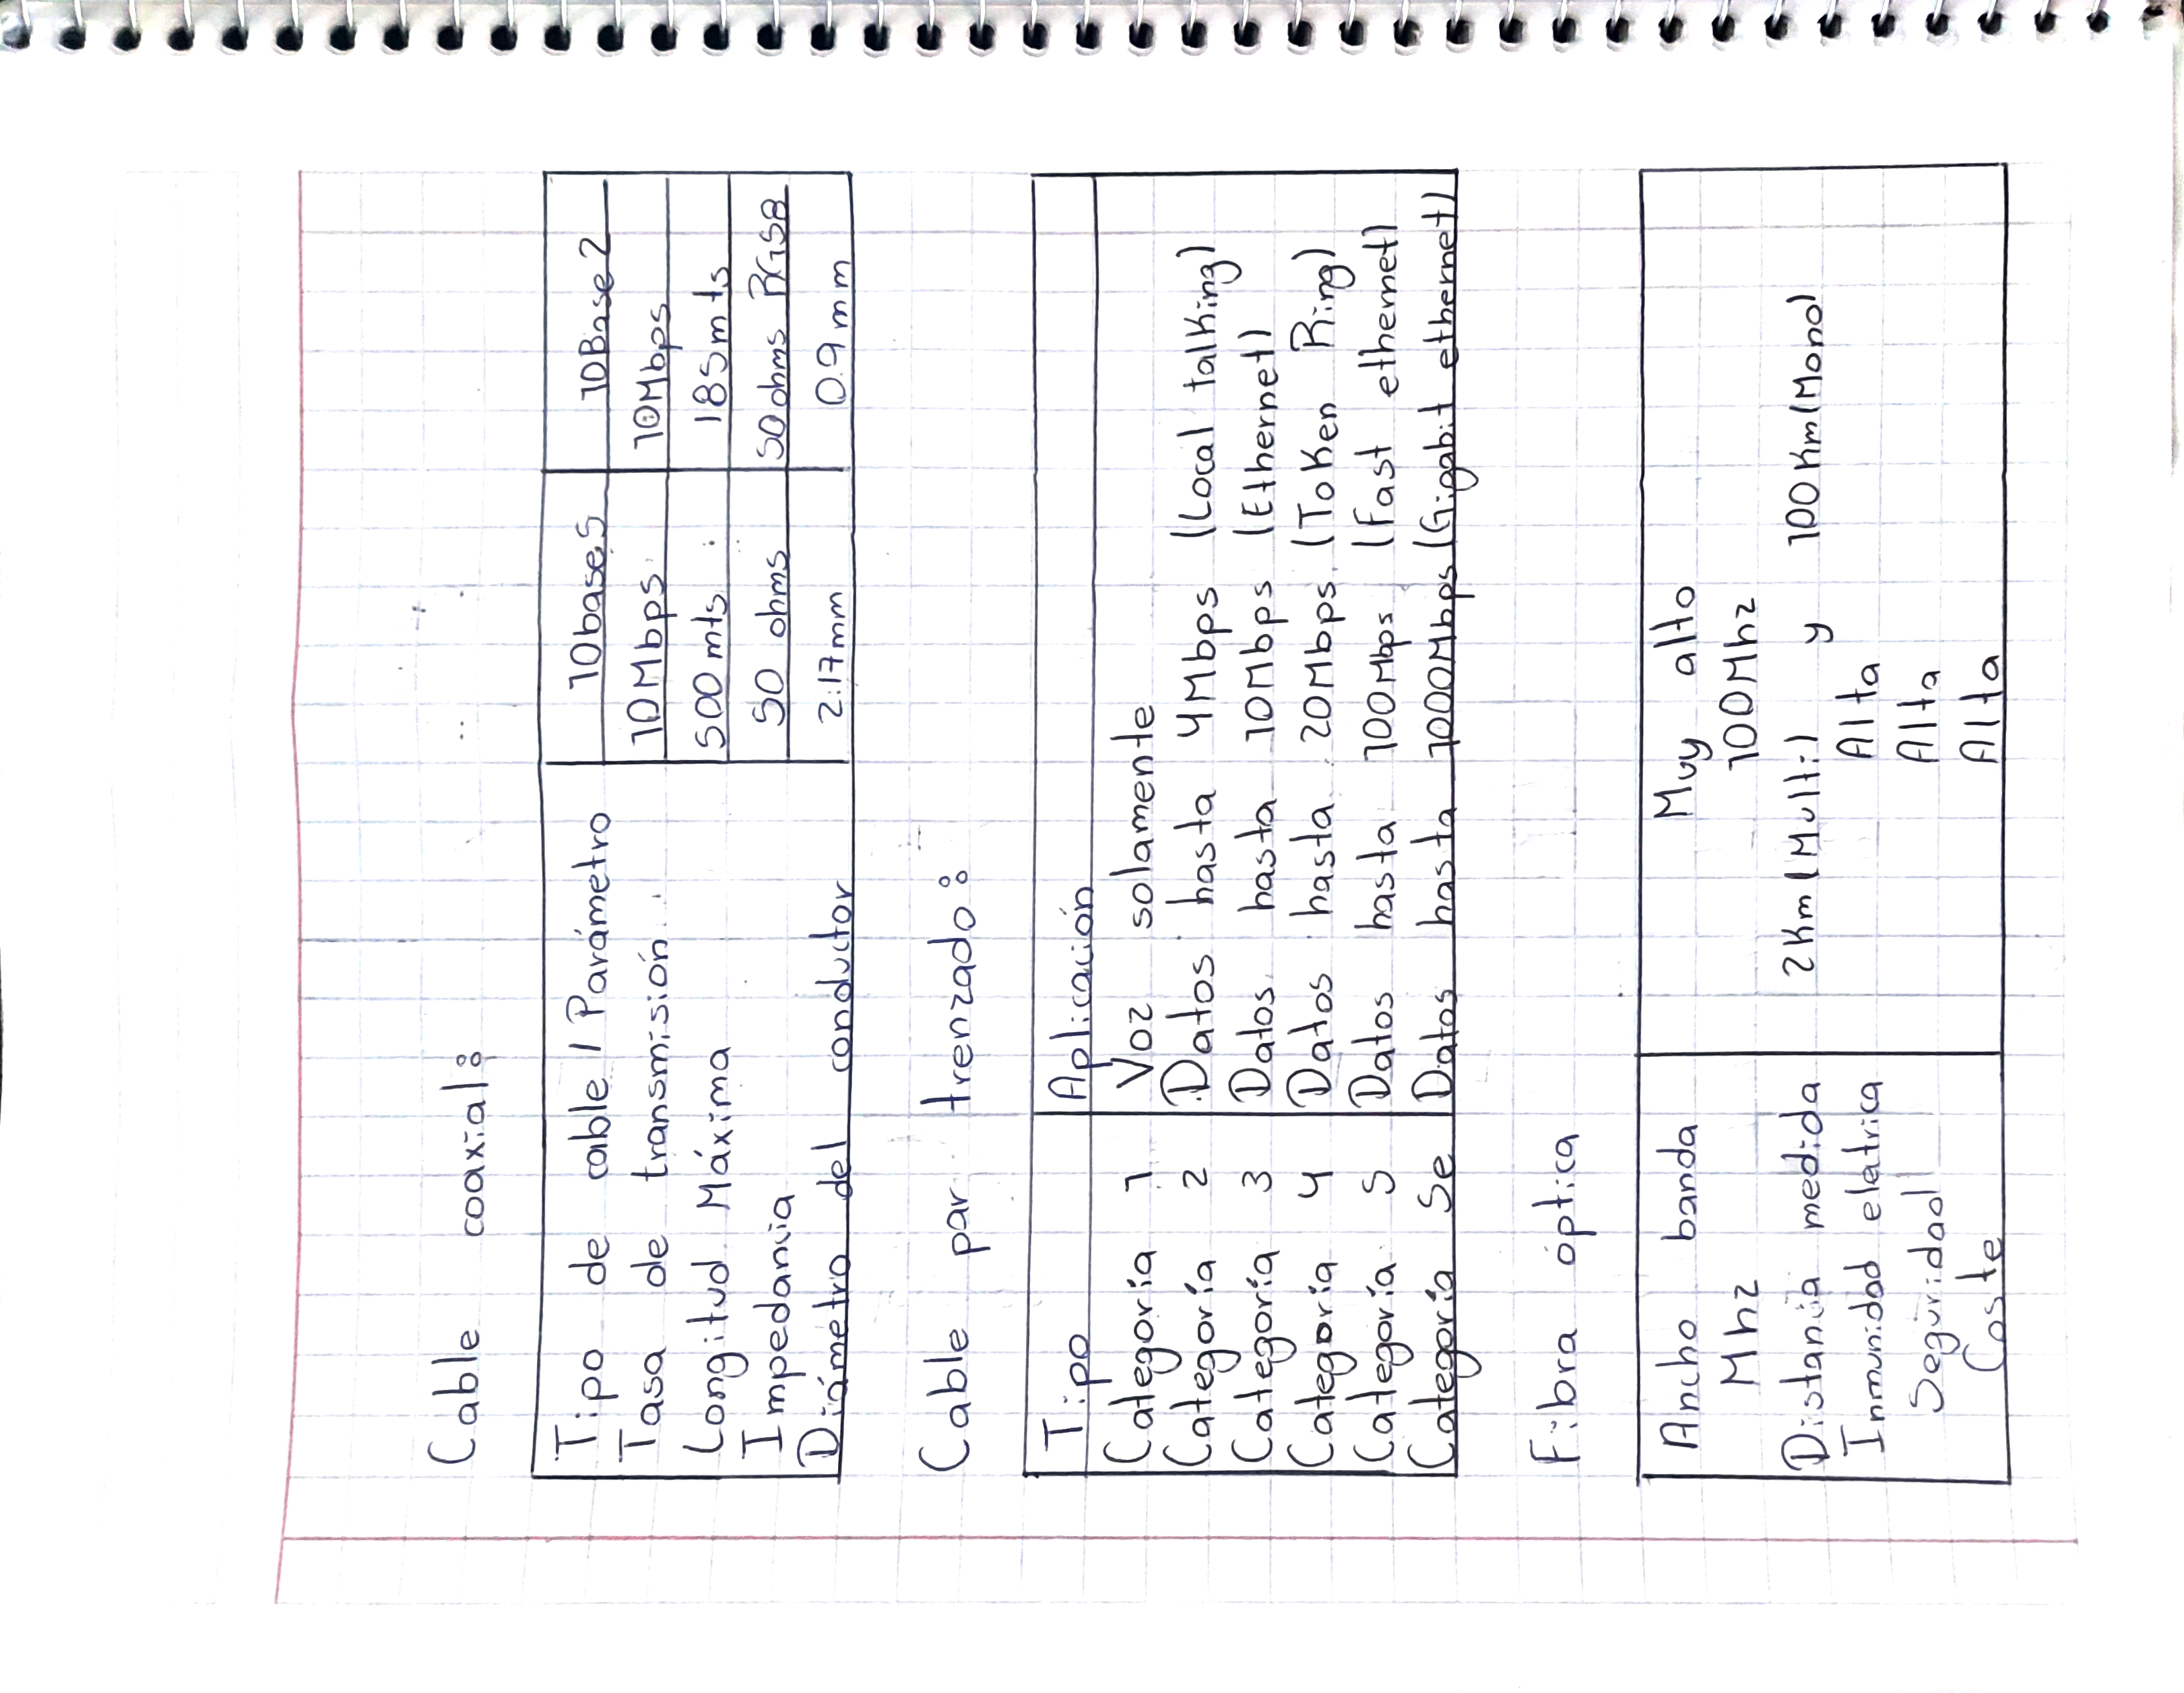 Cable coaxial:
Tipo de cable / Parámetro 10base5 10Base2
Tasa de transmisión 10Mbps 10Mbps
Longitud Máxima 500 mts 185mts
Impedancia 50 ohms 50 ohms RG58
Diámetro del conductor 2.17mm 0.9mm
Cable par trenzado:
Tipo Aplicación
Categoría 1 Voz solamente
Categoría 2 Datos hasta 4Mbps (Local talking)
Categoría 3 Datos hasta 10Mbps (Ethernet)
Categoría 4 Datos hasta 20Mbps (Token Ring)
Categoría 5 Datos hasta 100Mbps (Fast ethernet)
Categoría 5e Datos hasta 1000Mbps (Gigabit ethernet)
Fibra óptica
Ancho banda Muy alto
Mhz 100Mhz
Distancia medida 2Km (Multi) y 100Km (Mono)
Inmunidad electrica Alta
Seguridad Alta
Coste Alta